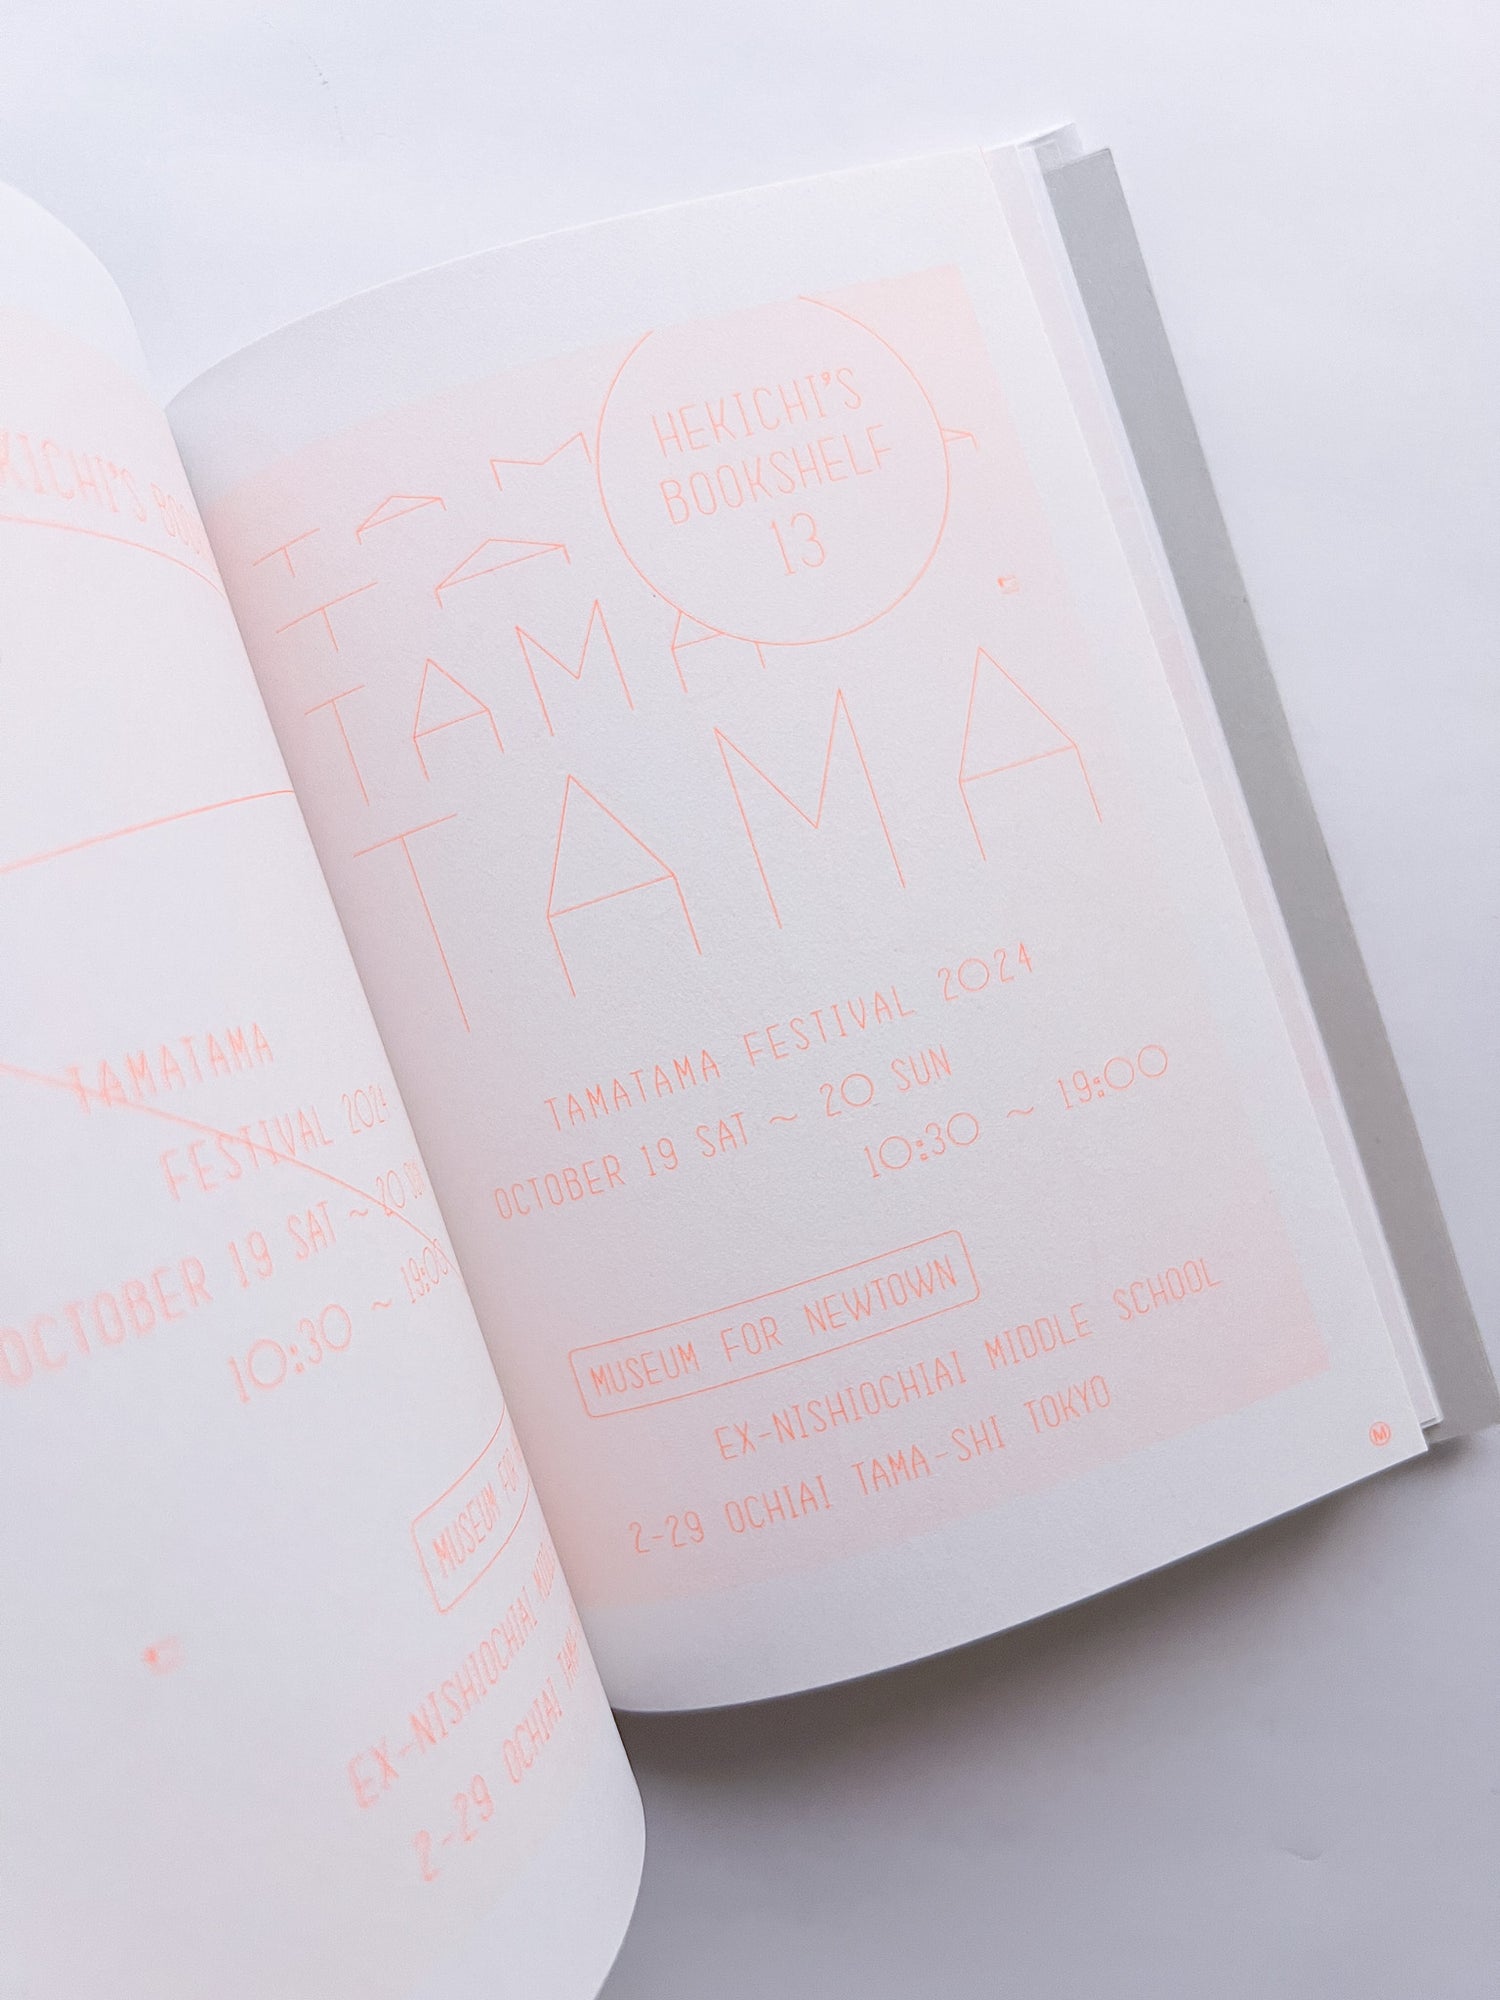 KICHI'S BOO
TAMATAMA
FESTIVAL 2024
OCTOBER 19 SAT ~ 20 SU
10:30 ~ 19:0
MUSEUM FOR
EX-NISHIOCHIAI MIDD
2-29 OCHIAI TAMA
HEKICHI'S
BOOKSHELF
13
TAM
TA
TAMA
TAMA
TAMATAMA FESTIVAL 2024
OCTOBER 19 SAT ~ 20 SUN
10:30 ~ 19:00
MUSEUM FOR NEWTOWN
EX-NISHIOCHIAI MIDDLE SCHOOL
2-29 OCHIAI TAMA-SHI TOKYO
M